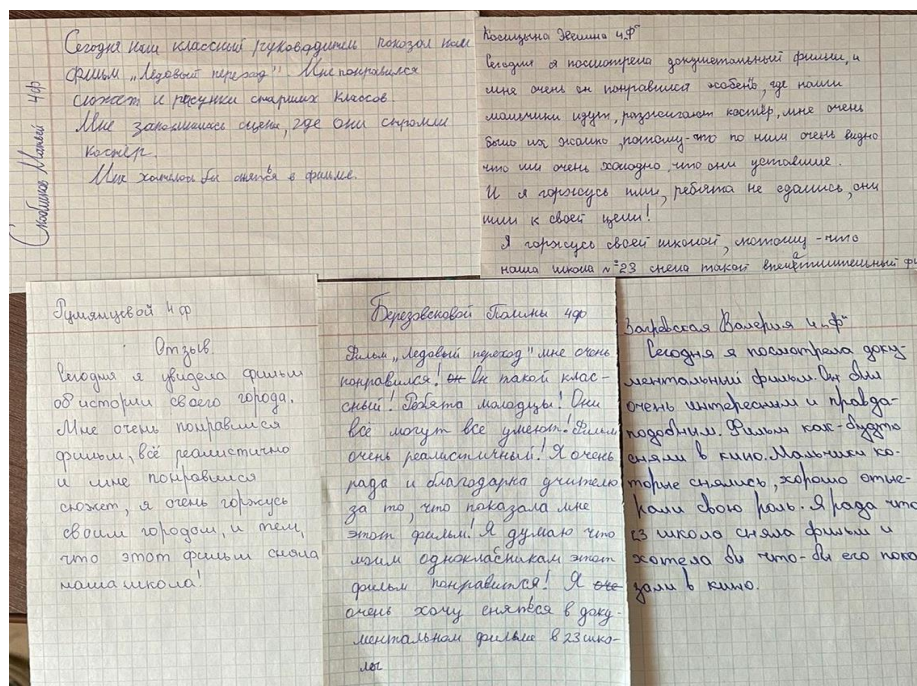 Скобликов Матвей 4ф
Сегодня наш классный руководитель показал нам
фильм „Ледовый переход". Мне понравился
сюжет и рисунки старших классов.
Мне запомнилась сцена, где они строили
костёр.
Мне хотелось бы снятся в фильме.
Косицына Эвелина 4„Ф"
Сегодня я посмотрела документальный фильм, и
мне очень он понравился особенно, где наши
мальчики идут, разжигают костёр, мне очень
было их жалко, потому-что по ним очень видно
что им очень холодно, что они уставшие.
И я горжусь ими, ребята не сдались, они
шли к своей цели!
Я горжусь своей школой, потому-что
наша школа №23 сняла такой впечатлительный
Румянцевой 4ф
Отзыв.
Сегодня я увидела фильм
об истории своего города.
Мне очень понравился
фильм, всё реалистично
и мне понравился
сюжет, я очень горжусь
своим городом, и тем,
что этот фильм сняла
наша школа!
Березовсковой Полины 4ф
Фильм „Ледовый переход" мне очень
понравился! Он такой клас-
сный! Ребята молодцы! Они
всё могут все умеют! Фильм
очень реалистичный! Я очень
рада и благодарна учителю
за то, что показала мне
этот фильм! Я думаю что
моим одноклас­никам этот
фильм понравится! Я
очень хочу сняться в доку-
ментальном фильме в 23 шко-
лы
Загревская Валерия 4„ф"
Сегодня я посмотрела доку-
ментальный фильм. Он был
очень интересным и правда-
подобным. Фильм как-будто
сняли в кино. Мальчики ко-
торые снялись, хорошо отые-
грали свою роль. Я рада что
23 школа сняла фильм и
хотела бы что-бы его пока
зали в кино.